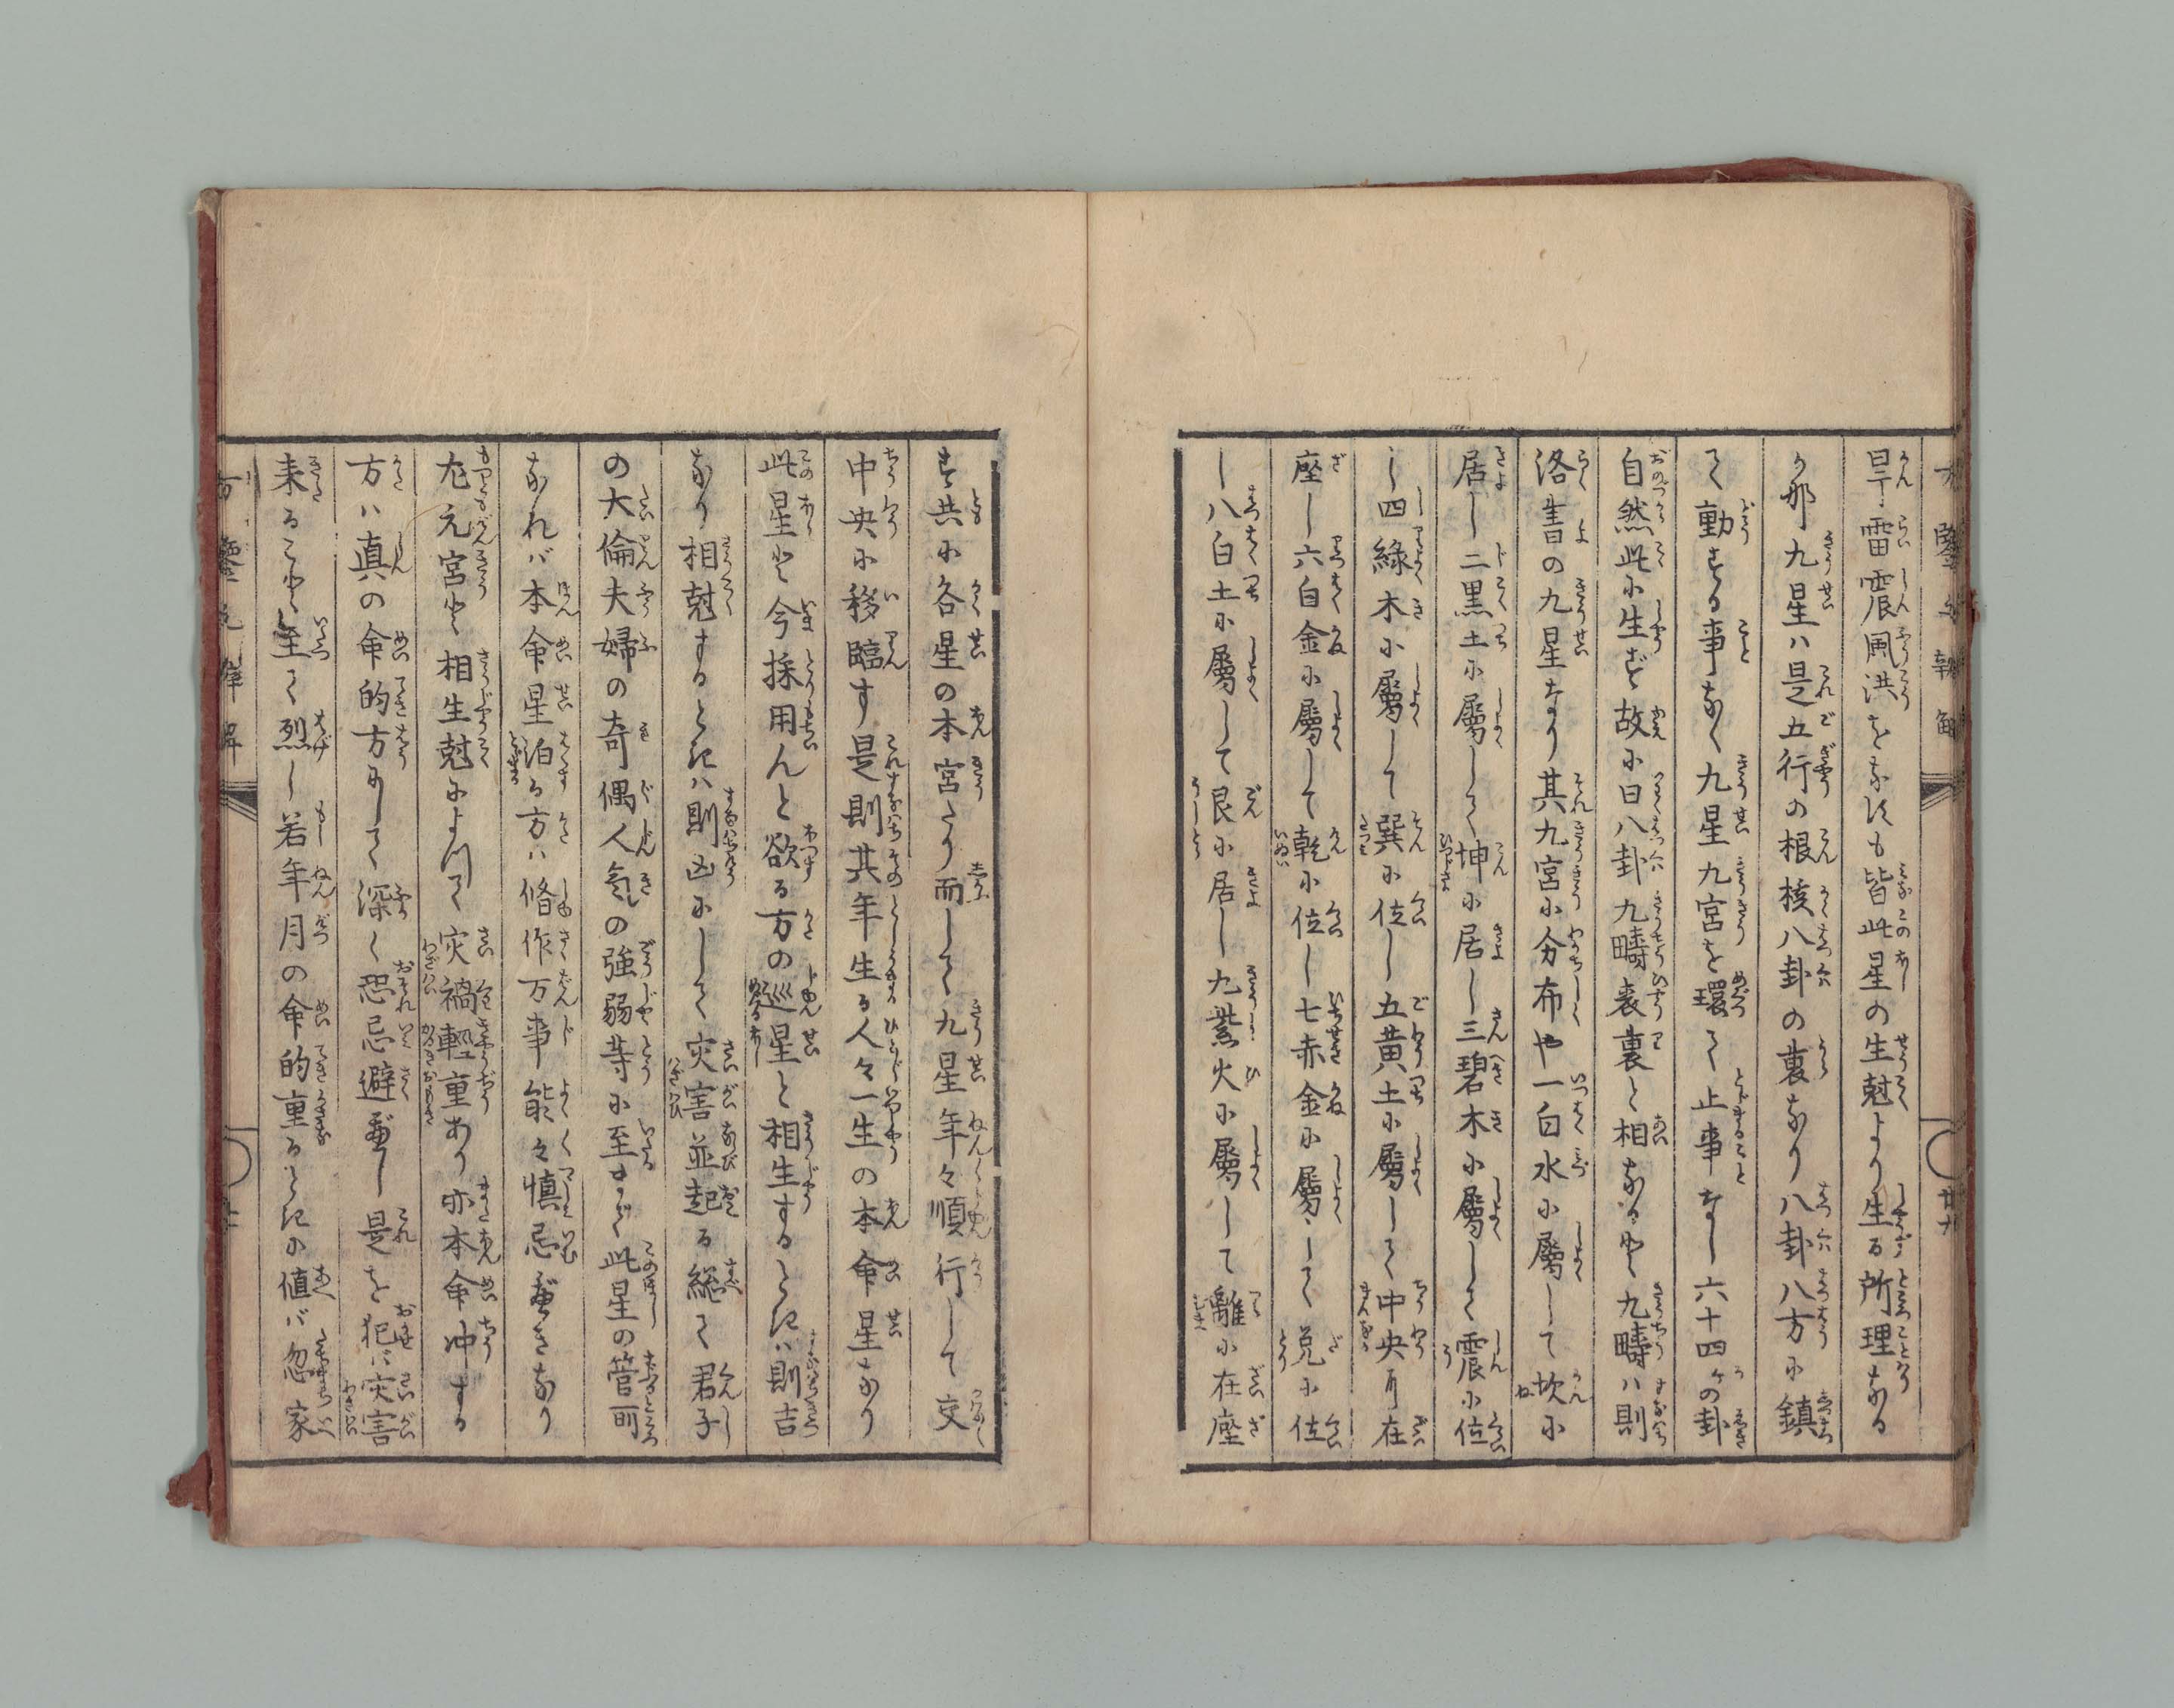 旱雷震風洪をなすも皆此星の生尅より生る所理なる
か那九星ハ是五行の根核八卦の裏なり八卦八方に鎮
て動ずる事なく九星九宮を環て止事なし六十四ヶの卦
自然此に生ず故に曰八卦九疇表裏と相なると九疇ハ則
洛書の九星なり其九宮に分布や一白水に屬して坎に
居し二黒土に屬して坤に居し三碧木に屬して震に位
し四緑木に屬して巽に位し五黄土に屬して中央に在
座し六白金に屬して乾に位し七赤金に屬して兌に位
し八白土に屬して艮に居し九紫火に屬して離に在座
す共に各星の本宮なり而して九星年々順行して交
中央に移臨す是則其年生る人々一生の本命星なり
此星と今採用んと欲る方の巡星と相生するときハ則吉
なり相尅するときハ則凶にして灾害並起る総て君子
の大倫夫婦の奇偶人氣の強弱等に至まで此星の管所
なれバ本命星泊る方ハ脩作万事能々慎忌べきなり
尤元宮と相生尅によつて灾禍輕重あり亦本命冲する
方ハ真の命的方にして深く恐忌避べし是を犯バ灾害
来ること至て烈し若年月の命的重るときに値バ忽家